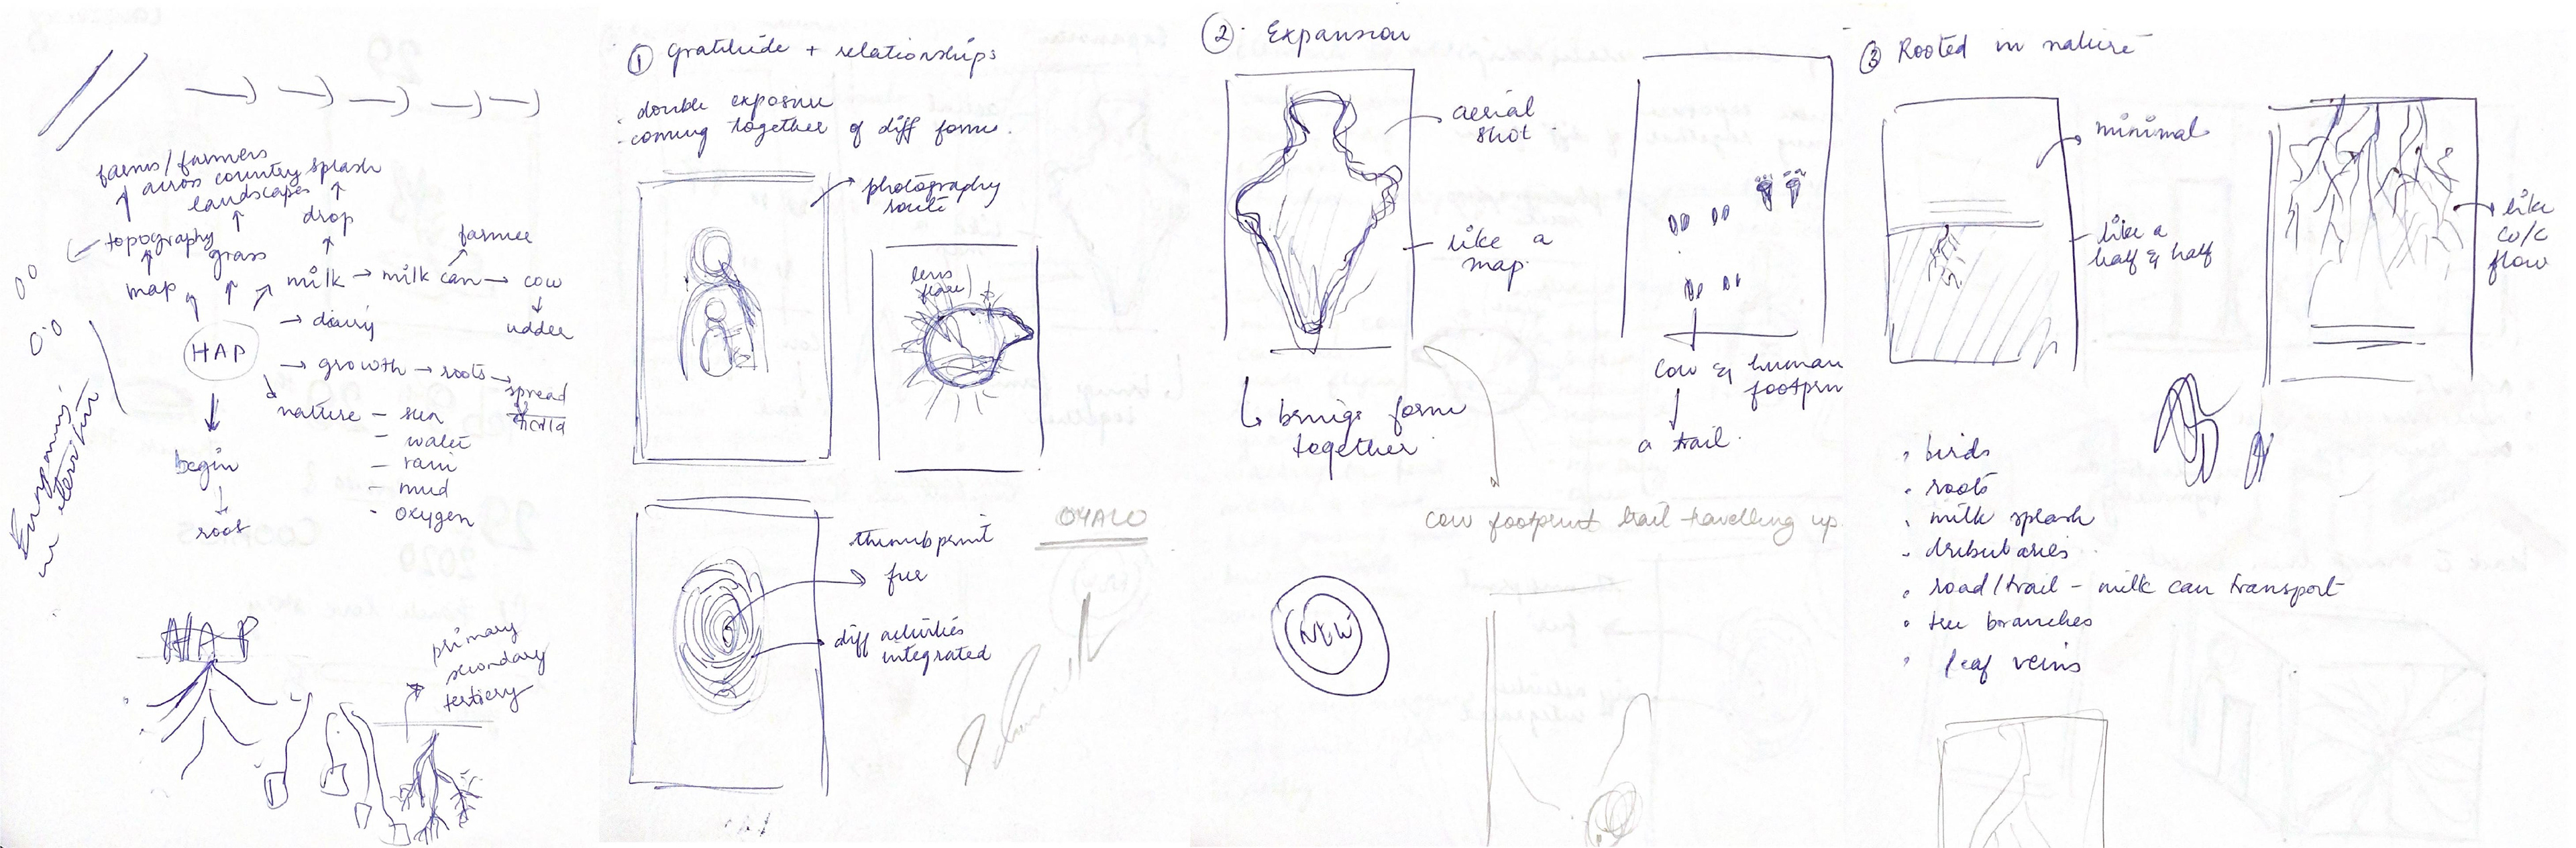 farms/farmers
across country
landscapes
splash
drop
topography
grass
map
milk → milk can → cow
farmer
udder
HAP
→ dairy
→ growth → roots →
spread
nature – sun
– water
– rain
– mud
- oxygen
begin
root
HAP
primary
secondary
tertiery
① Gratitude + relationships
. double exposure
. coming together of diff forms.
photography
route
lens
flare
thumbprint
diff activities
integrated
② Expansion
aerial
shot
like a
map.
brings form
together
cow & human
a trail.
cow footprint trail travelling up
NEW
③ Rooted in nature
minimal
like a
half & half
like
flow
. birds
. roots
. milk splash
. road/trail – milk can transport
. tree branches
. leaf veins